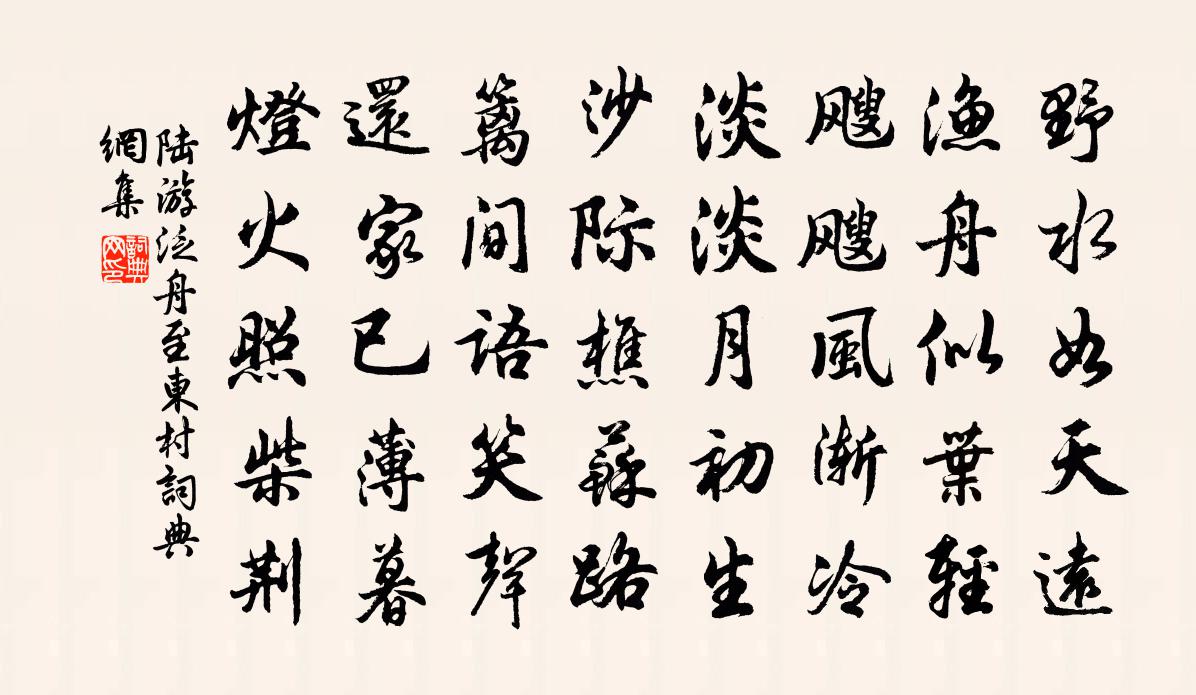 野水如天遠
漁舟似葉輕
颼颼風漸冷
淡淡月初生
沙際樵蘇路
籬間語笑聲
還家已薄暮
燈火照柴荆
陆游泛舟至東村詞典
網集
詞典
网印